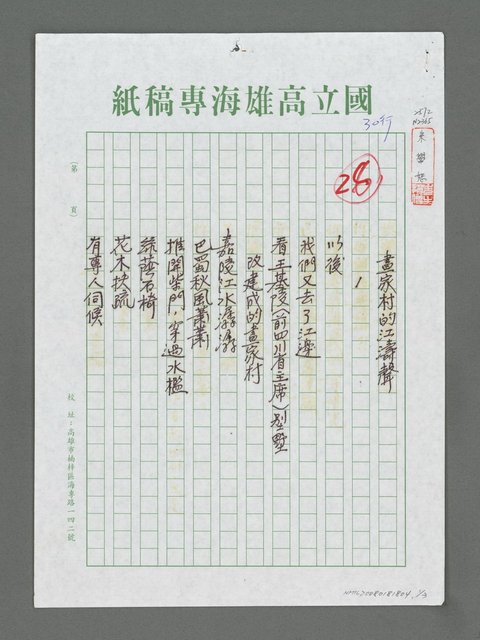 國立高雄海專稿紙
30行
28
朱學恕
畫家村的江濤聲
1
以後
我們又去了江邊
看王基陵(前四川省主席)別墅
改建成的畫家村
嘉陵江水潺潺
巴蜀秋風蕭蕭
推開柴門,穿過水檻
綠蔭石椅
花木扶疏
有專人伺候
(第 頁)
校址:高雄市楠梓區海專路一四二號
NMTL20080181804, 1/3